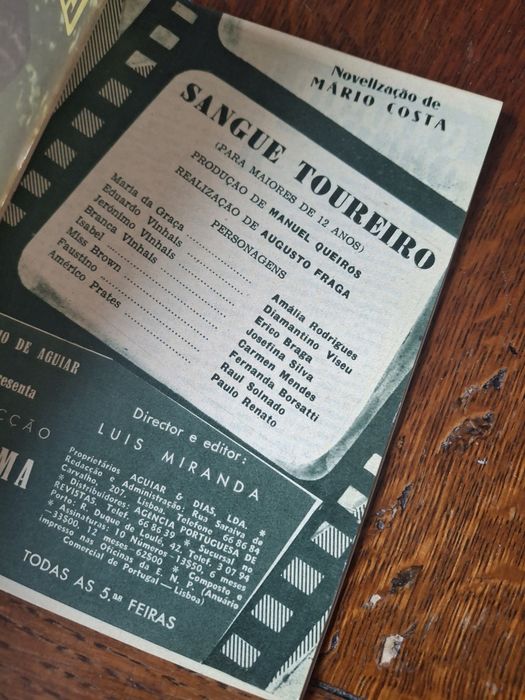 Novelização de
MÁRIO COSTA
SANGUE TOUREIRO
(PARA MAIORES DE 12 ANOS)
PRODUÇÃO DE MANUEL QUEIROS
REALIZAÇÃO DE AUGUSTO FRAGA
PERSONAGENS
Maria da Graça ............ Amália Rodrigues
Eduardo Vinhais ............ Diamantino Viseu
Jerónimo Vinhais ............ Erico Braga
Branca Vinhais ............ Josefina Silva
Isabel ............ Carmen Mendes
Miss Brown ............ Fernanda Borsatti
Faustino ............ Raul Solnado
Américo Prates ............ Paulo Renato
O DE AGUIAR
resenta
CÇÃO
MA
Director e editor:
LUIS MIRANDA
Proprietários AGUIAR & DIAS, LDA. *
Redacção e Administração: Rua Saraiva de
Carvalho, 207, Lisboa. Telefone 66 86 84
* Distribuidores: AGENCIA PORTUGUESA DE
REVISTAS. Telef. 66 86 39 * Sucursal no
Porto: R. Duque de Loulé, 42, Telef. 3 07 94
* Assinaturas: 10 Números -13$50, 6 meses
-33$00. 12 meses-62$00 * Composto e
impresso nas Oficinas da E. N. P. (Anuário
Comercial de Portugal — Lisboa)
TODAS AS 5.as FEIRAS